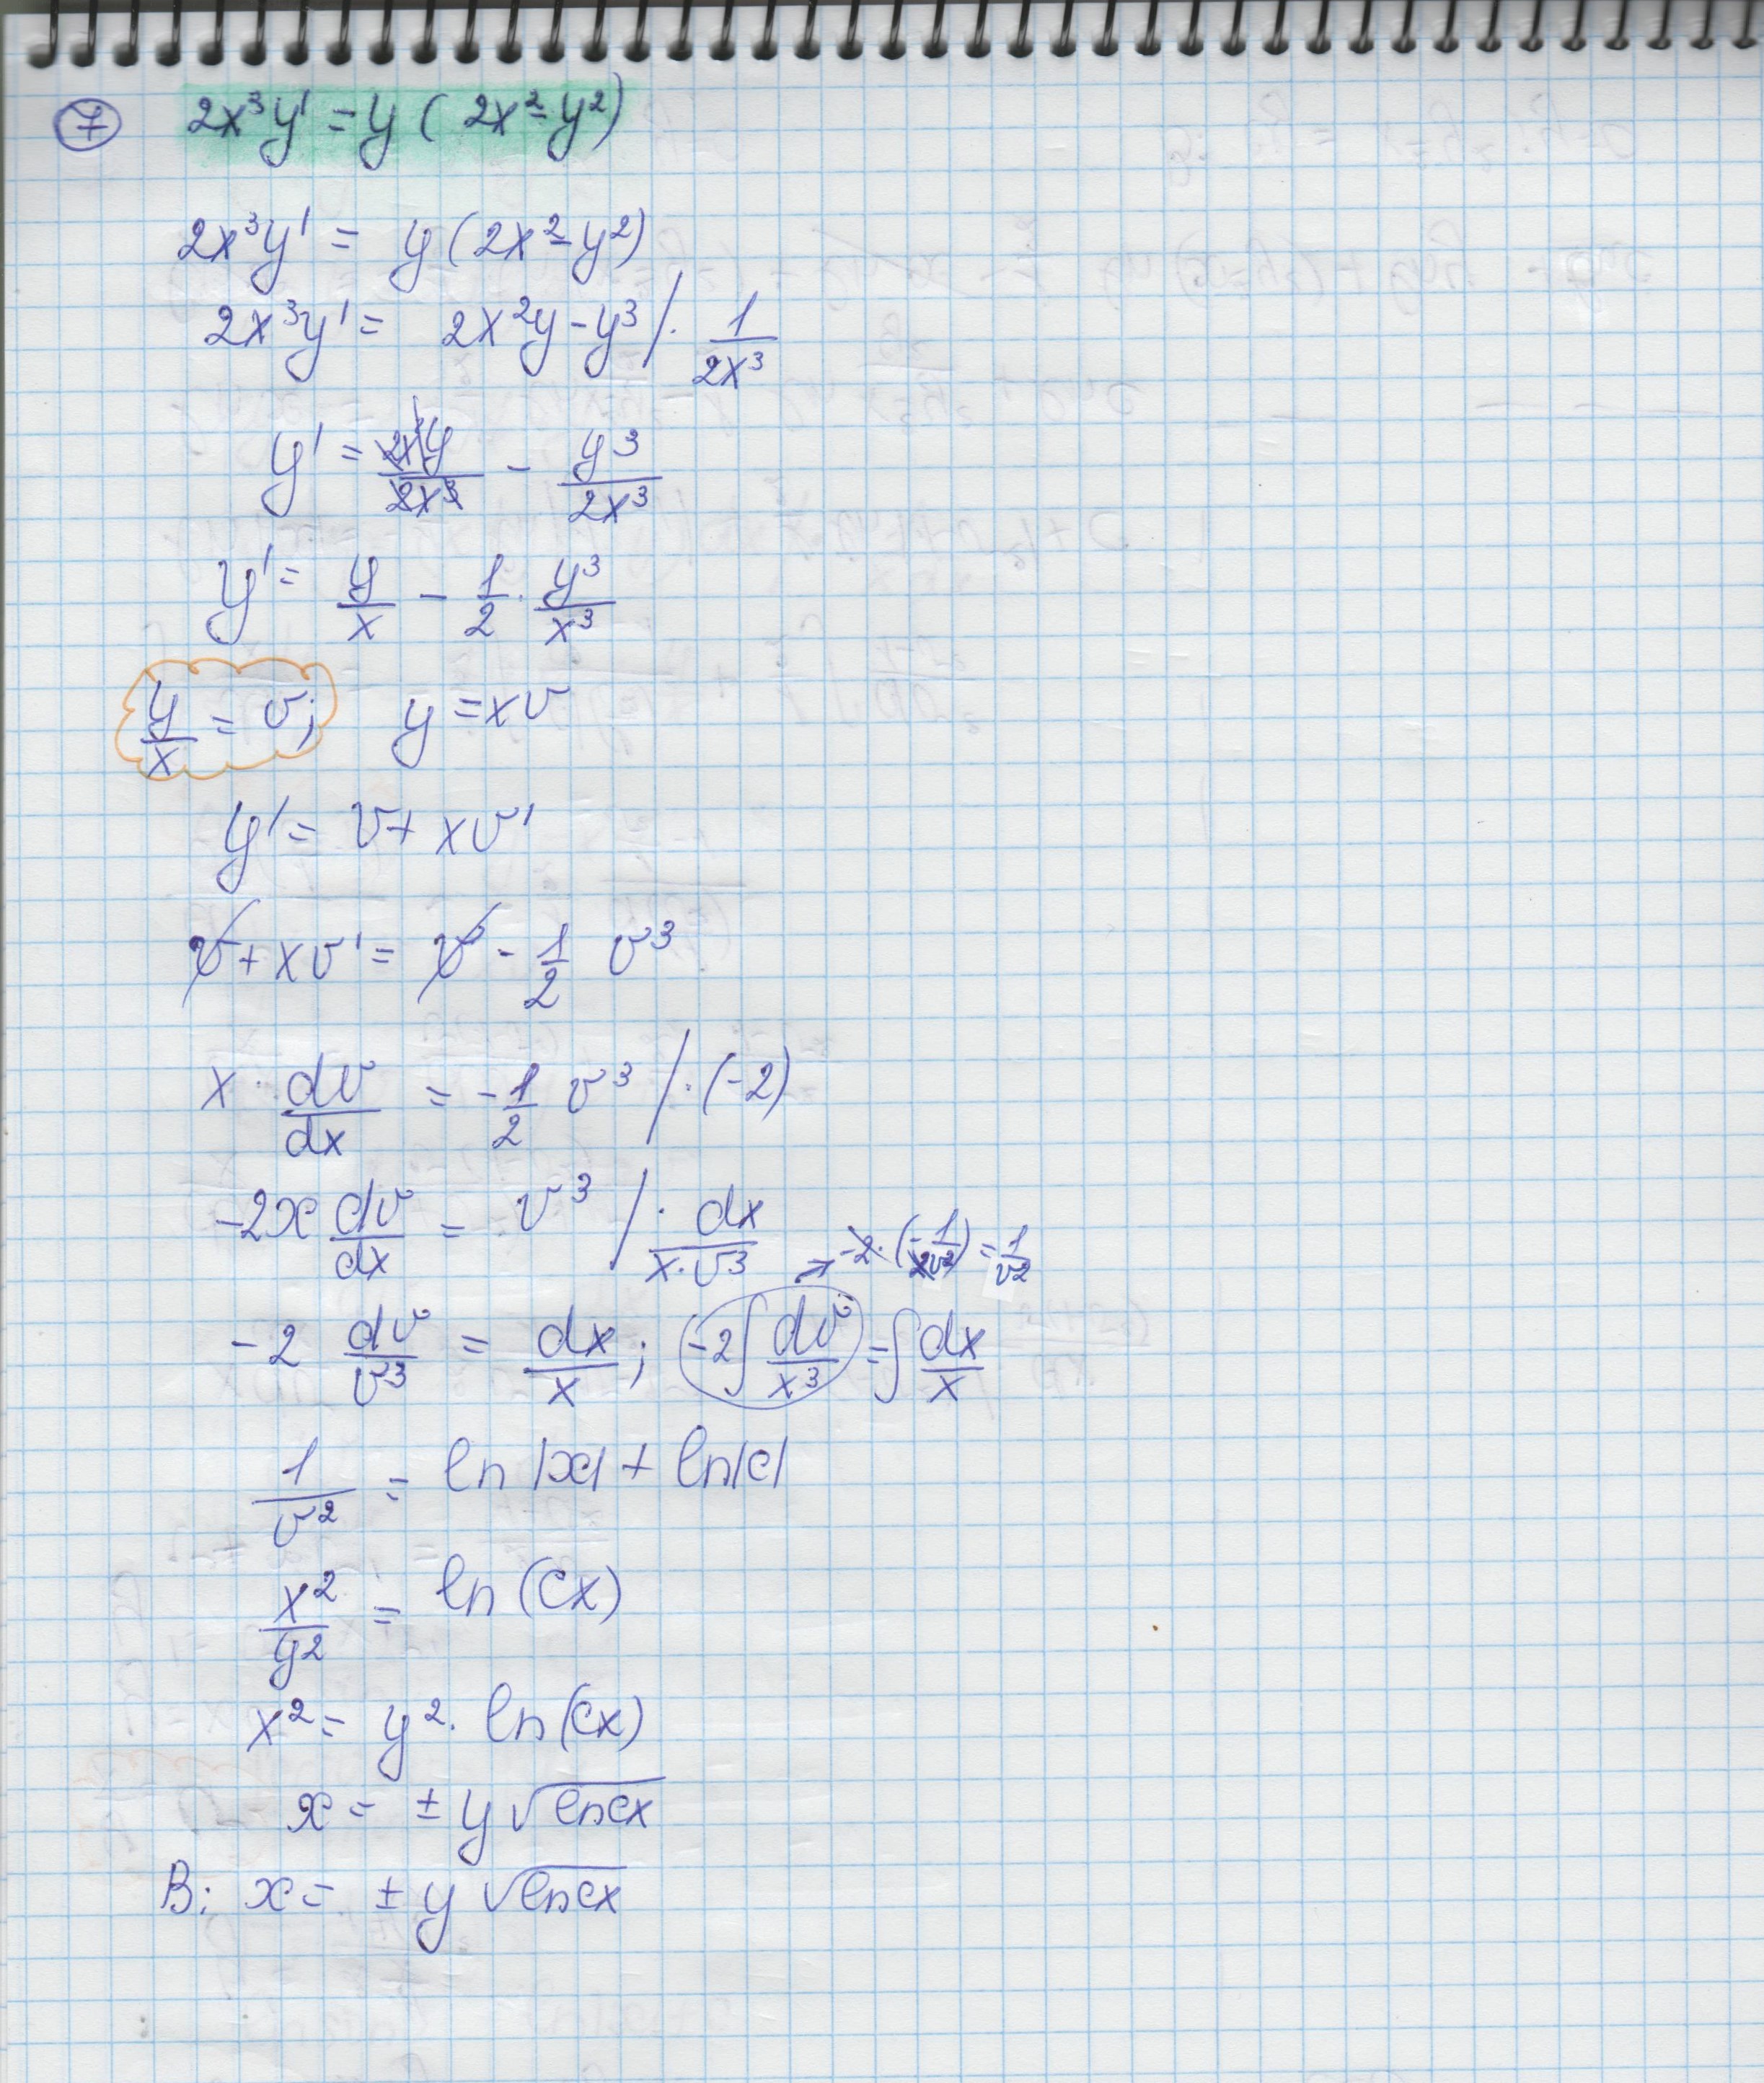 7 2x³y' = y (2x² - y²)
2x³y' = y (2x² - y²)
2x³y' = 2x²y - y³ / · 1/2x³
y' = 2x²y/2x³ - y³/2x³
y' = y/x - 1/2 · y³/x³
y/x = v; y = xv
y' = v + xv'
v + xv' = v - 1/2 v³
x · dv/dx = -1/2 v³ / · (-2)
-2x dv/dx = v³ / · dx/x·v³
→ -2 · (-1/2v²) = 1/v²
-2 dv/v³ = dx/x ; -2∫ dv/x³ = ∫ dx/x
1/v² = ln|x| + ln|c|
x²/y² = ln (Cx)
x² = y² · ln(Cx)
x = ± y √lncx
В: x = ± y √lncx